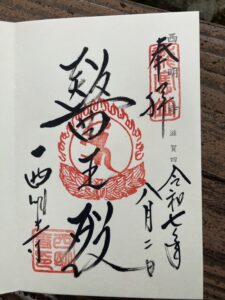 奉拝
西明寺
滋賀
令和七年
八月二日
醫王殿
西明寺